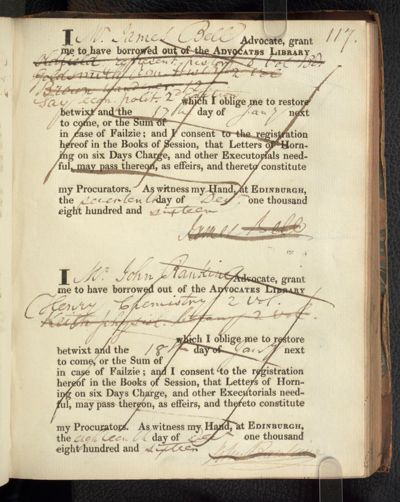 117.
I Mr. James Bell Advocate, grant
me to have borrowed out of the ADVOCATES LIBRARY
vol
2 vol
Say econ polit. 2
which I oblige me to restore
betwixt and the 17th day of Jany next
to come, or the Sum of
in case of Failzie; and I consent to the registration
hereof in the Books of Session, that Letters of Horn-
ing on six Days Charge, and other Executorials need-
ful, may pass thereon, as effeirs, and thereto constitute
my Procurators. As witness my Hand, at EDINBURGH,
the seventeenth day of Decr. one thousand
eight hundred and sixteen
James Bell
I Mr. John Rankine Advocate, grant
me to have borrowed out of the ADVOCATES LIBRARY
Henry Chemistry 2 vol.
Keith physic. botany 2 vol.
which I oblige me to restore
betwixt and the 18th day of Jany next
to come, or the Sum of
in case of Failzie; and I consent to the registration
hereof in the Books of Session, that Letters of Horn-
ing on six Days Charge, and other Executorials need-
ful, may pass thereon, as effeirs, and thereto constitute
my Procurators. As witness my Hand, at EDINBURGH,
the eighteenth day of one thousand
eight hundred and sixteen